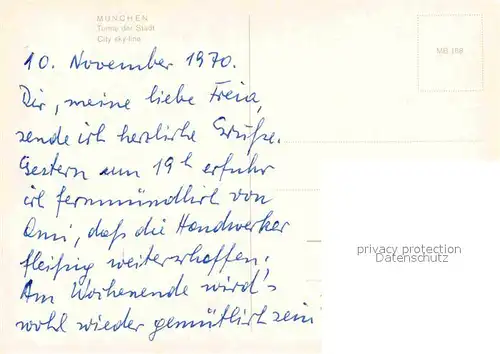 MÜNCHEN
Türme der Stadt
City sky-line
MB 168
10. November 1970.
Dir, meine liebe Freia,
sende ich herzliche Grüße.
Gestern um 19h erfuhr
ich fernmündlich von
Omi, daß die Handwerker
fleißig weiterschaffen.
Am Wochenende wird's
wohl wieder gemütlich sein
privacy protection
Datenschutz